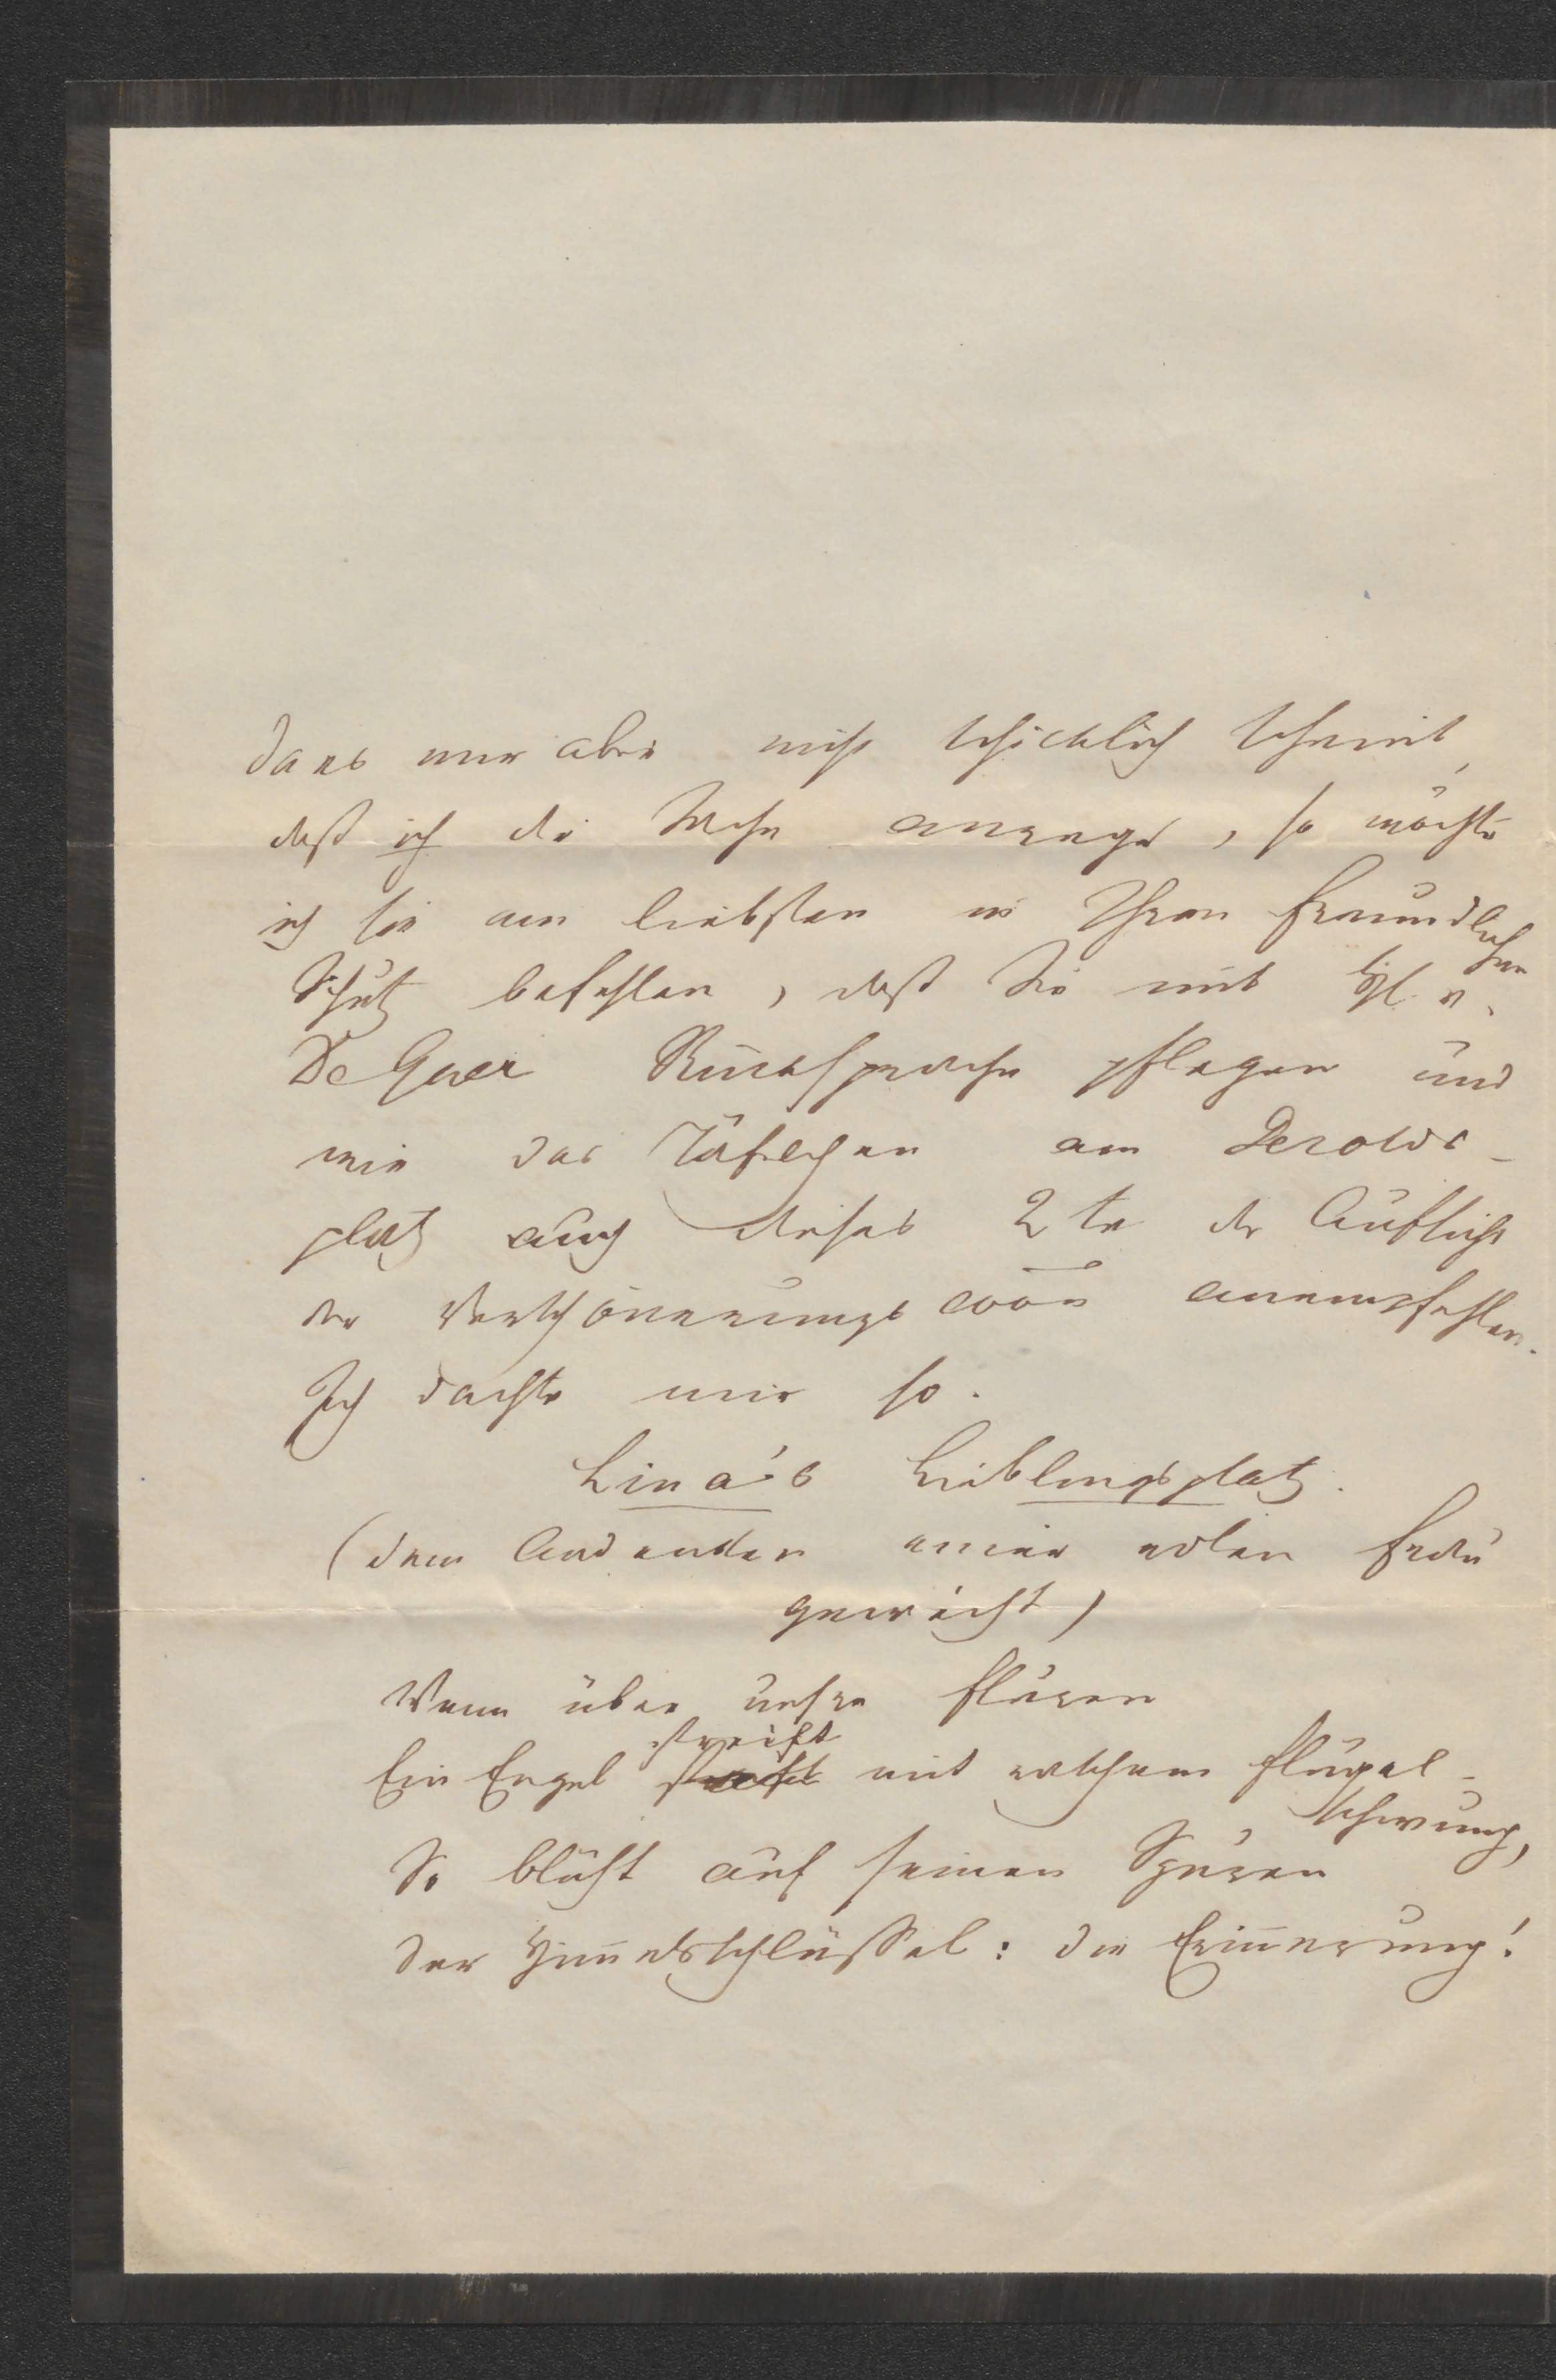 Da es mir aber nicht schicklich scheint,
daß ich die Sache anrege, so möchte
ich sie am liebsten in Ihren freundlichen
Schutz befehlen, daß Sie mit
De Geer Rücksprache pflegen und
wie das Täfelchen am Gerolds-
platz auch dieses 2te der Aufsicht
der Verschönerungs anempfehlen.
Ich dachte mir so.
Lina's Lieblingsplatz.
(dem Andenken einer edlen Frau
geweiht)
Wenn über unsre Fluren
Ein Engel streift mit raschem Flügel-
schwung,
So blüht auf seinen Spuren
Der Him̅elsschlüssel: die Erin̅erung!